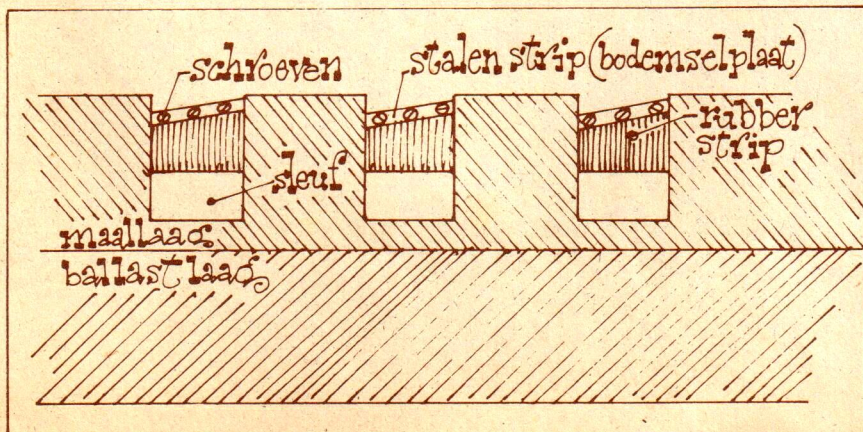 schroeven
stalen strip (bodemselplaat)
rubber
strip
sleuf
maallaag
ballastlaag